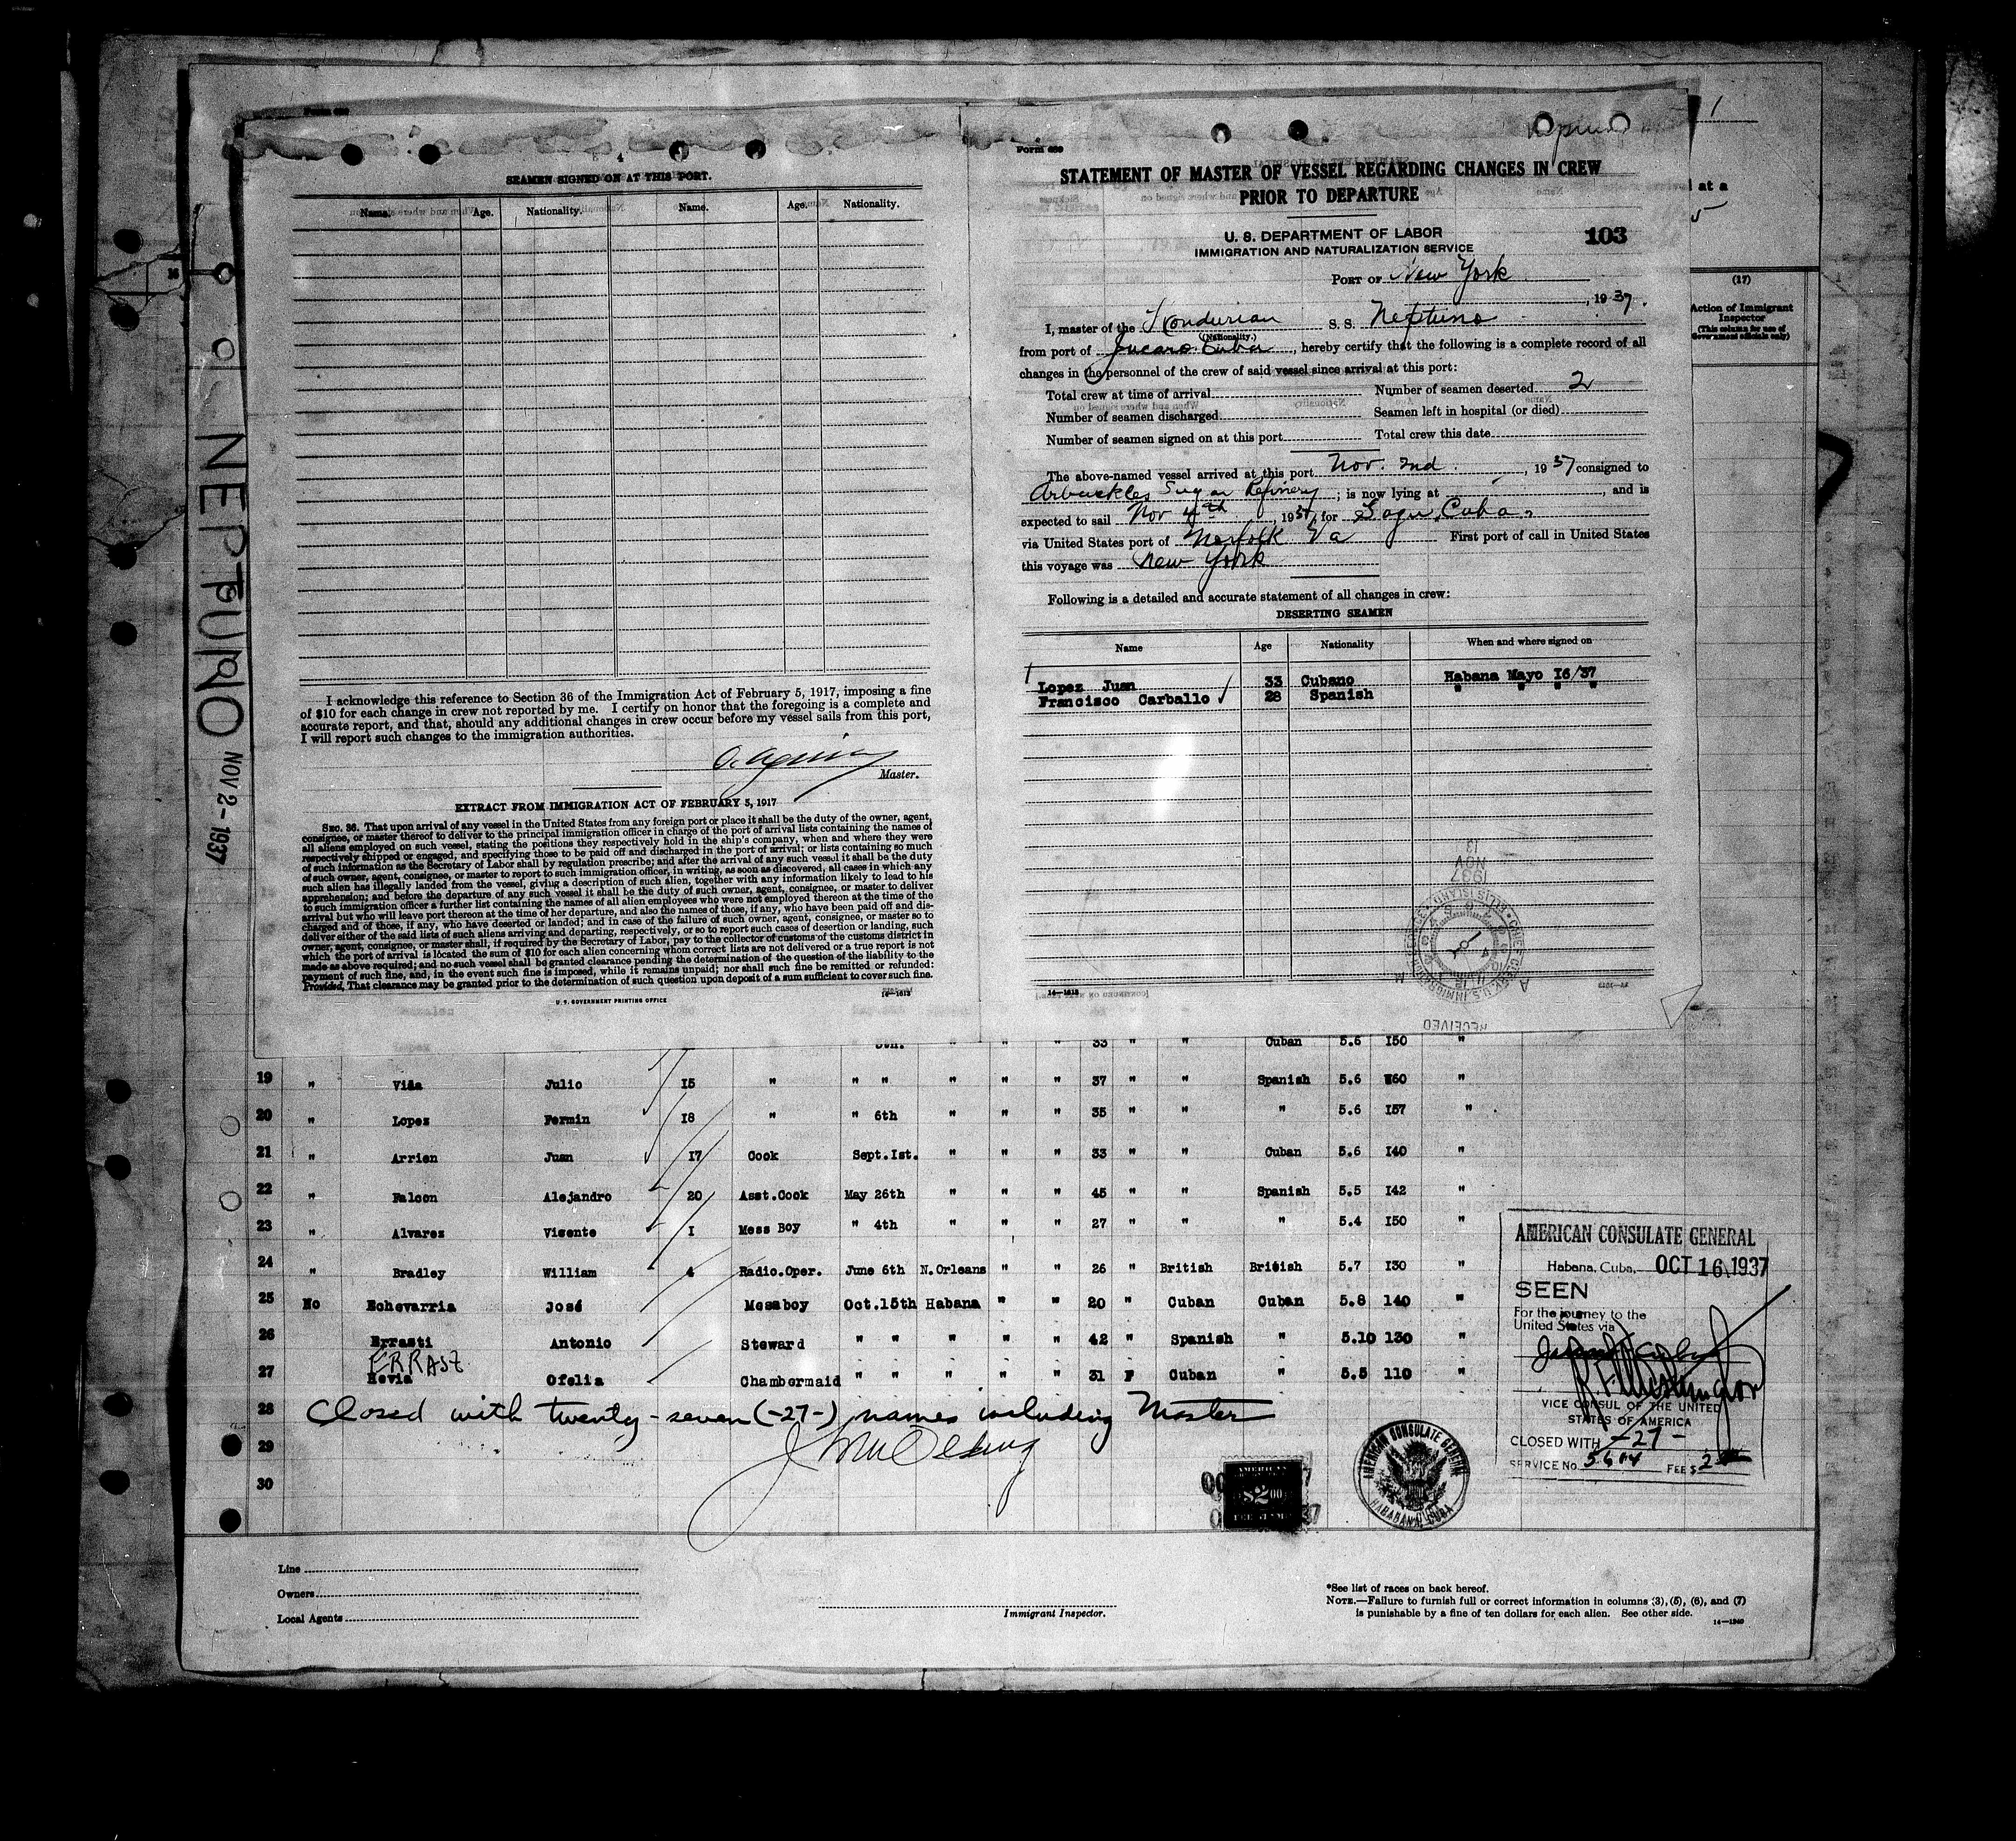 NEPTUNO NOV 2 - 1937
SEAMEN SIGNED ON AT THIS PORT.
Name. Age. Nationality. Name. Age. Nationality.
I acknowledge this reference to Section 36 of the Immigration Act of February 5, 1917, imposing a fine
of $10 for each change in crew not reported by me. I certify on honor that the foregoing is a complete and
accurate report, and that, should any additional changes in crew occur before my vessel sails from this port,
I will report such changes to the immigration authorities.
Master.
EXTRACT FROM IMMIGRATION ACT OF FEBRUARY 5, 1917
SEC. 36. That upon arrival of any vessel in the United States from any foreign port or place it shall be the duty of the owner, agent,
consignee, or master thereof to deliver to the principal immigration officer in charge of the port of arrival lists containing the names of
all aliens employed on such vessel, stating the positions they respectively hold in the ship's company, when and where they were
respectively shipped or engaged, and specifying those to be paid off and discharged in the port of arrival; or lists containing so much
of such information as the Secretary of Labor shall by regulation prescribe; and after the arrival of any such vessel it shall be the duty
of such owner, agent, consignee, or master to report to such immigration officer, in writing, as soon as discovered, all cases in which any
such alien has illegally landed from the vessel, giving a description of such alien, together with any information likely to lead to his
apprehension; and before the departure of any such vessel it shall be the duty of such owner, agent, consignee, or master to deliver
to such immigration officer a further list containing the names of all alien employees who were not employed thereon at the time of the
arrival but who will leave port thereon at the time of her departure, and also the names of those, if any, who have been paid off and dis-
charged and of those, if any, who have deserted or landed; and in case of the failure of such owner, agent, consignee, or master so to
deliver either of the said lists of such aliens arriving and departing, respectively, or so to report such cases of desertion or landing, such
owner, agent, consignee, or master shall, if required by the Secretary of Labor, pay to the collector of customs of the customs district in
which the port of arrival is located the sum of $10 for each alien concerning whom correct lists are not delivered or a true report is not
made as above required; and no such vessel shall be granted clearance pending the determination of the question of the liability to the
payment of such fine, and, in the event such fine is imposed, while it remains unpaid; nor shall such fine be remitted or refunded:
Provided, That clearance may be granted prior to the determination of such question upon deposit of a sum sufficient to cover such fine.
U. S. GOVERNMENT PRINTING OFFICE 14—1613
Form 689
STATEMENT OF MASTER OF VESSEL REGARDING CHANGES IN CREW
PRIOR TO DEPARTURE
U. S. DEPARTMENT OF LABOR 103
IMMIGRATION AND NATURALIZATION SERVICE
PORT OF New York
, 1937.
I, master of the Hondurian S. S. Neptuno
(Nationality.)
from port of Jucaro Cuba, hereby certify that the following is a complete record of all
changes in the personnel of the crew of said vessel since arrival at this port:
Total crew at time of arrival Number of seamen deserted 2
Number of seamen discharged Seamen left in hospital (or died)
Number of seamen signed on at this port Total crew this date
The above-named vessel arrived at this port Nov. 2nd, 1937 consigned to
Arbuckles Sugar Refinery; is now lying at , and is
expected to sail Nov 4th, 1937, for Sagu, Cuba,
via United States port of Norfolk Va First port of call in United States
this voyage was New York
Following is a detailed and accurate statement of all changes in crew:
DESERTING SEAMEN
Name Age Nationality When and where signed on
Lopez Juan 33 Cubano Habana Mayo 16/37
Francisco Carballo 28 Spanish " " " "
14—1613
1
at a
5
(17)
Action of Immigrant
Inspector
(This column for use of
Government officials only)
33 " " Cuban 5.6 150 "
19 " Viña Julio 15 " " " " " " 37 " " Spanish 5.6 160 "
20 " Lopez Fermin 18 " " 6th " " " 35 " " " 5.6 157 "
21 " Arrien Juan 17 Cook Sept.1st. " " " 33 " " Cuban 5.6 140 "
22 " Falcon Alejandro 20 Asst.Cook May 26th " " " 45 " " Spanish 5.5 142 "
23 " Alvarez Vicente 1 Mess Boy " 4th " " " 27 " " " 5.4 150 "
24 " Bradley William 4 Radio.Oper. June 6th N.Orleans " " 26 " British British 5.7 130 "
25 No Echevarria José Mesaboy Oct.15th Habana " " 20 " Cuban Cuban 5.8 140 "
26 Errasti Antonio Steward " " " " " 42 " Spanish " 5.10 130 "
ERRAST
27 Hevia Ofelia Chambermaid " " " " " 31 F Cuban " 5.5 110 "
28 Closed with twenty-seven (-27-) names including Master
29
30
AMERICAN CONSULATE GENERAL
Habana, Cuba, OCT 16 1937
SEEN
For the journey to the
United States via
VICE CONSUL OF THE UNITED
STATES OF AMERICA
CLOSED WITH -27-
SERVICE No. 5614 FEE $ 2
AMERICAN
$2.00
AMERICAN CONSULATE GENERAL
HABANA, CUBA
Line
Owners
Local Agents
Immigrant Inspector.
*See list of races on back hereof.
NOTE.—Failure to furnish full or correct information in columns (3), (5), (6), and (7)
is punishable by a fine of ten dollars for each alien. See other side.
14—1240